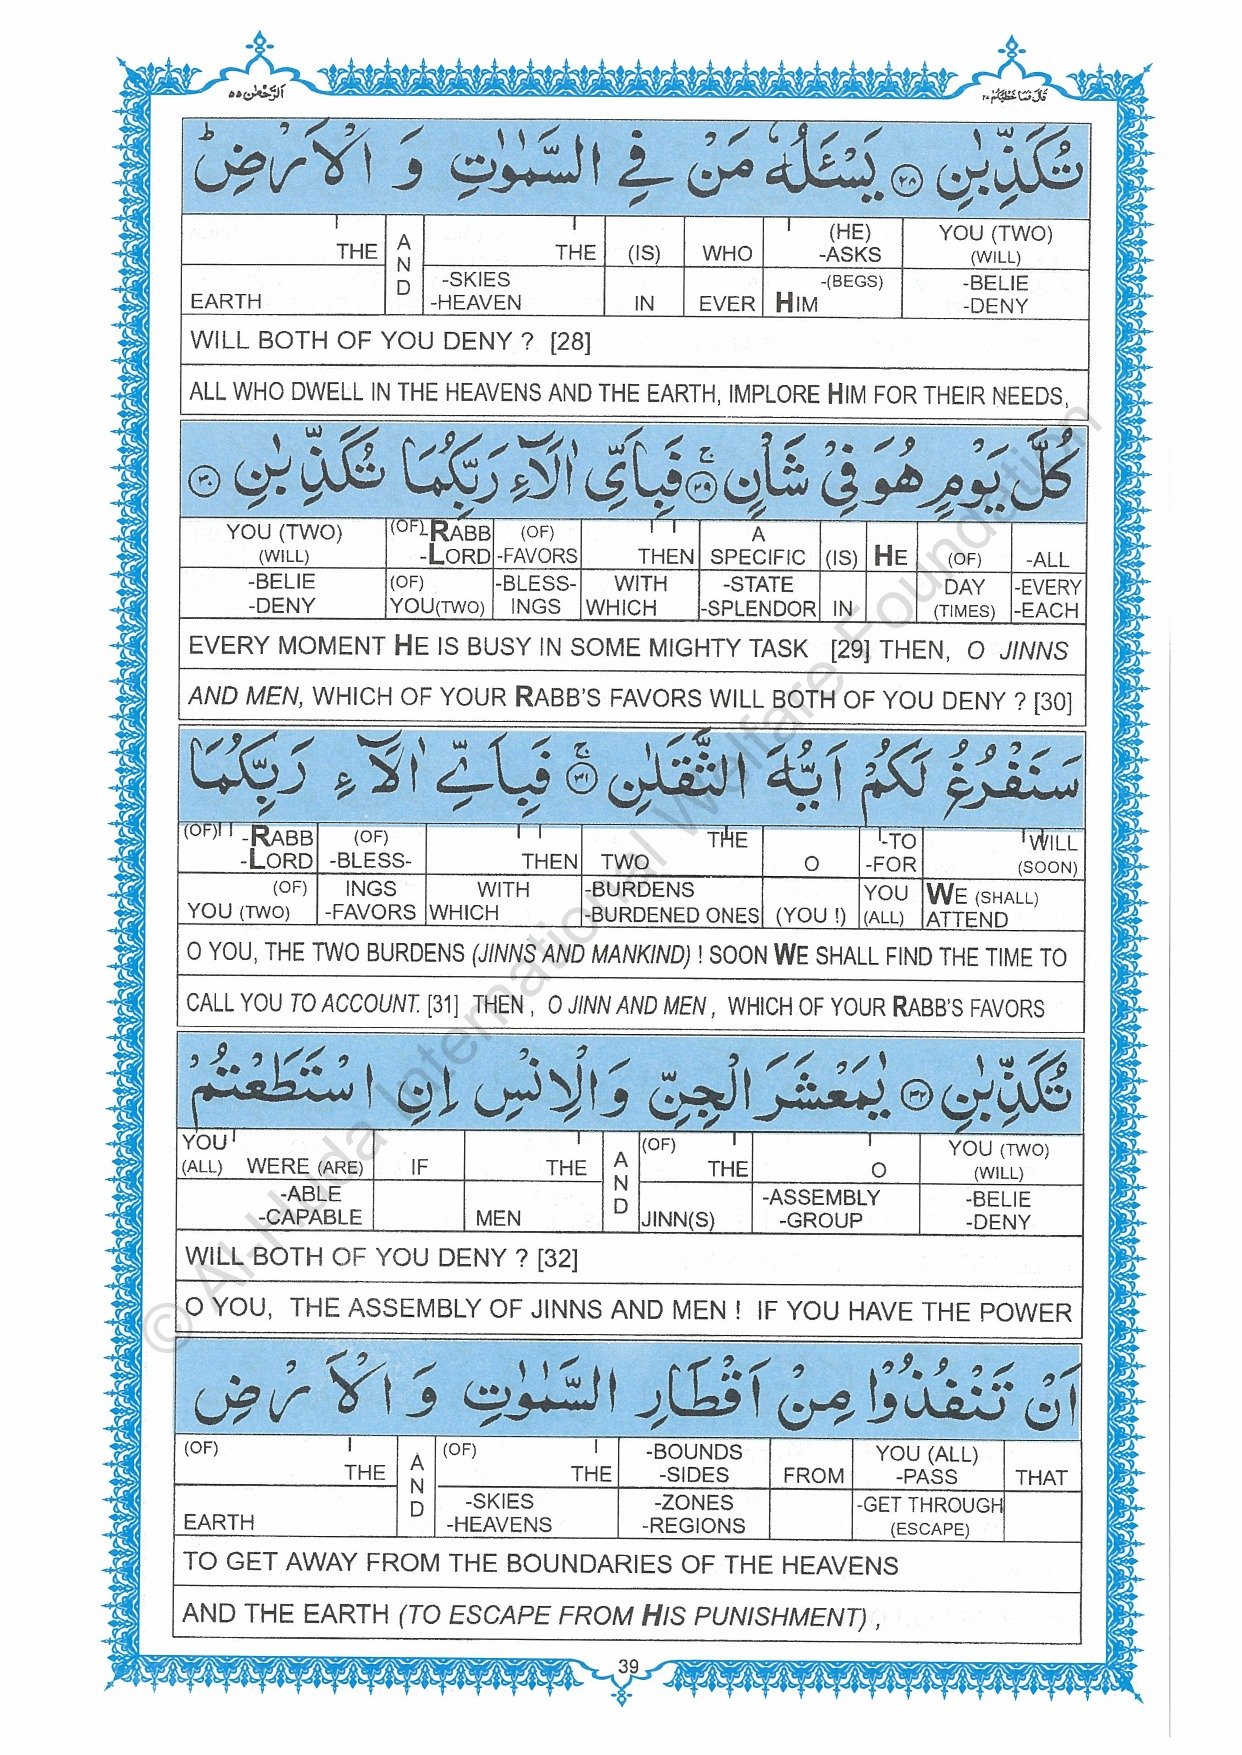 اَلرَّحْمٰن ٥٥
قَالَ فَمَا خَطْبُكُمْ ٢٧
تُكَذِّبٰنِ ٢٨ يَسْـَٔلُهٗ مَنْ فِي السَّمٰوٰتِ وَ الْاَرْضِ ؕ
THE AND THE (IS) WHO (HE) -ASKS YOU (TWO) (WILL)
EARTH -SKIES -HEAVEN IN EVER -(BEGS) HIM -BELIE -DENY
WILL BOTH OF YOU DENY ? [28]
ALL WHO DWELL IN THE HEAVENS AND THE EARTH, IMPLORE HIM FOR THEIR NEEDS,
كُلَّ يَوْمٍ هُوَ فِيْ شَاْنٍ ۚ ٢٩ فَبِاَيِّ اٰلَآءِ رَبِّكُمَا تُكَذِّبٰنِ ٣٠
YOU (TWO) (WILL) (OF) -RABB -LORD (OF) -FAVORS THEN A SPECIFIC (IS) HE (OF) -ALL
-BELIE -DENY (OF) YOU(TWO) -BLESS- INGS WITH WHICH -STATE -SPLENDOR IN DAY (TIMES) -EVERY -EACH
EVERY MOMENT HE IS BUSY IN SOME MIGHTY TASK [29] THEN, O JINNS
AND MEN, WHICH OF YOUR RABB'S FAVORS WILL BOTH OF YOU DENY ? [30]
سَنَفْرُغُ لَكُمْ اَيُّهَ الثَّقَلٰنِ ۚ ٣١ فَبِاَيِّ اٰلَآءِ رَبِّكُمَا
(OF) -RABB -LORD (OF) -BLESS- THEN THE TWO O -TO -FOR WILL (SOON)
(OF) YOU (TWO) INGS -FAVORS WITH WHICH -BURDENS -BURDENED ONES (YOU !) YOU (ALL) WE (SHALL) ATTEND
O YOU, THE TWO BURDENS (JINNS AND MANKIND) ! SOON WE SHALL FIND THE TIME TO
CALL YOU TO ACCOUNT. [31] THEN , O JINN AND MEN , WHICH OF YOUR RABB'S FAVORS
تُكَذِّبٰنِ ٣٢ يٰمَعْشَرَ الْجِنِّ وَ الْاِنْسِ اِنِ اسْتَطَعْتُمْ
YOU (ALL) WERE (ARE) IF THE AND (OF) THE O YOU (TWO) (WILL)
-ABLE -CAPABLE MEN JINN(S) -ASSEMBLY -GROUP -BELIE -DENY
WILL BOTH OF YOU DENY ? [32]
O YOU, THE ASSEMBLY OF JINNS AND MEN ! IF YOU HAVE THE POWER
اَنْ تَنْفُذُوْا مِنْ اَقْطَارِ السَّمٰوٰتِ وَ الْاَرْضِ
(OF) THE AND (OF) THE -BOUNDS -SIDES FROM YOU (ALL) -PASS THAT
EARTH -SKIES -HEAVENS -ZONES -REGIONS -GET THROUGH (ESCAPE)
TO GET AWAY FROM THE BOUNDARIES OF THE HEAVENS
AND THE EARTH (TO ESCAPE FROM HIS PUNISHMENT) ,
39
© Al-Huda International Welfare Foundation